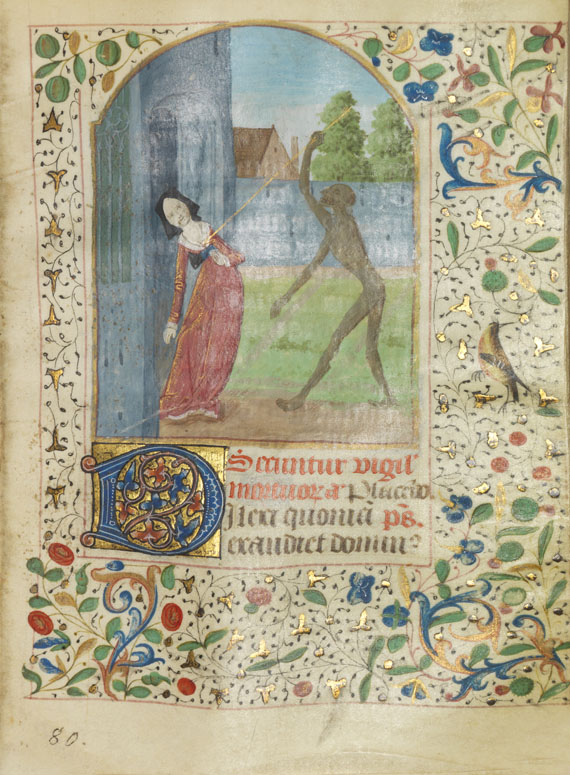 Secuntur vigil'
mortuorȝ a⁊ Placebo.
Dilexi quoniã p̃s.
exaudiet domin⁹
80.